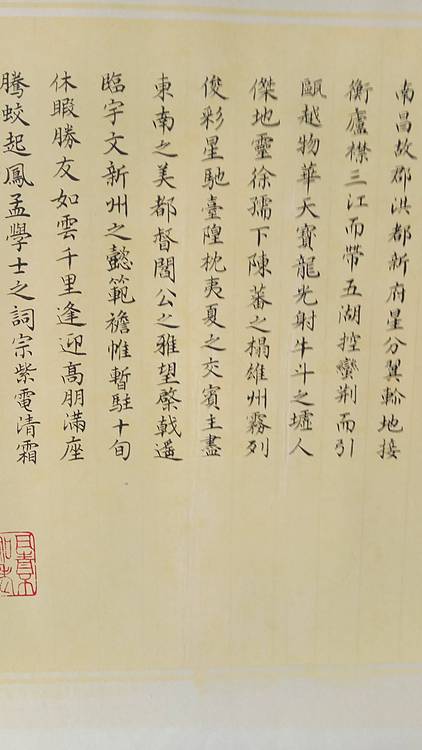 南昌故郡洪都新府星分翼軫地接
衡廬襟三江而帶五湖控蠻荊而引
甌越物華天寶龍光射牛斗之墟人
傑地靈徐孺下陳蕃之榻雄州霧列
俊彩星馳臺隍枕夷夏之交賓主盡
東南之美都督閻公之雅望棨戟遙
臨宇文新州之懿範襜帷暫駐十旬
休暇勝友如雲千里逢迎高朋滿座
騰蛟起鳳孟學士之詞宗紫電清霜